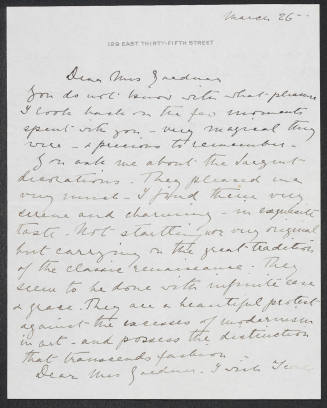 March 26 —
129 EAST THIRTY-FIFTH STREET
Dear Mrs Gardner
You do not know with what pleasure
I look back on the few moments
spent with you, — very magical they
were — & precious to remember —
You ask me about the Sargent
decorations. They pleased me
very much — I found them very
serene and charming — in exquisite
taste. Not startling or very original
but carrying on the great tradition
of the classic renaissance. They
seem to be done with infinite ease
& grace. They are a beautiful protest
against the excesses of modernism
in art — and possess the distinction
that transcends fashion
Dear Mrs Gardner — I wish I